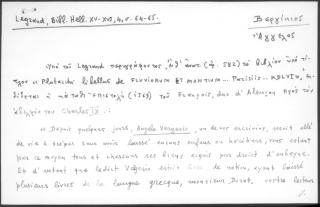 Legrand, Bibl. Hell. XV-XVI, 4, σ. 64-65.
Βεργίκιος
Ἄγγελος
Ὑπὸ τοῦ Legrand περιγράφεται, ἀρ. (φ. 582) τὸ βιβλίον ὑπὸ
τίτλον « Plutarchi libellus de FLUVIORUM ET MONTIUM... Parisiis...
ἐπιστολὴ (1569) τοῦ François, duc d'Alençon πρὸς τὸν
ἀδελφόν του Charles IX:
« Depuis quelques jours, Angelo Vergecio, un de vos escrivins, seroit allé
de vie à trespas sans avoir laissé aucuns enfans ou heritiers, vous estant
par ce moyen tous et chascuns ses biens acquis par droict d'aubeyne.
Et d'autant que ledict Végecio estoit Grec de nation, ayant laissé
plusieurs livres de la langue grecque, monsieur Dorat, vostre lecteur